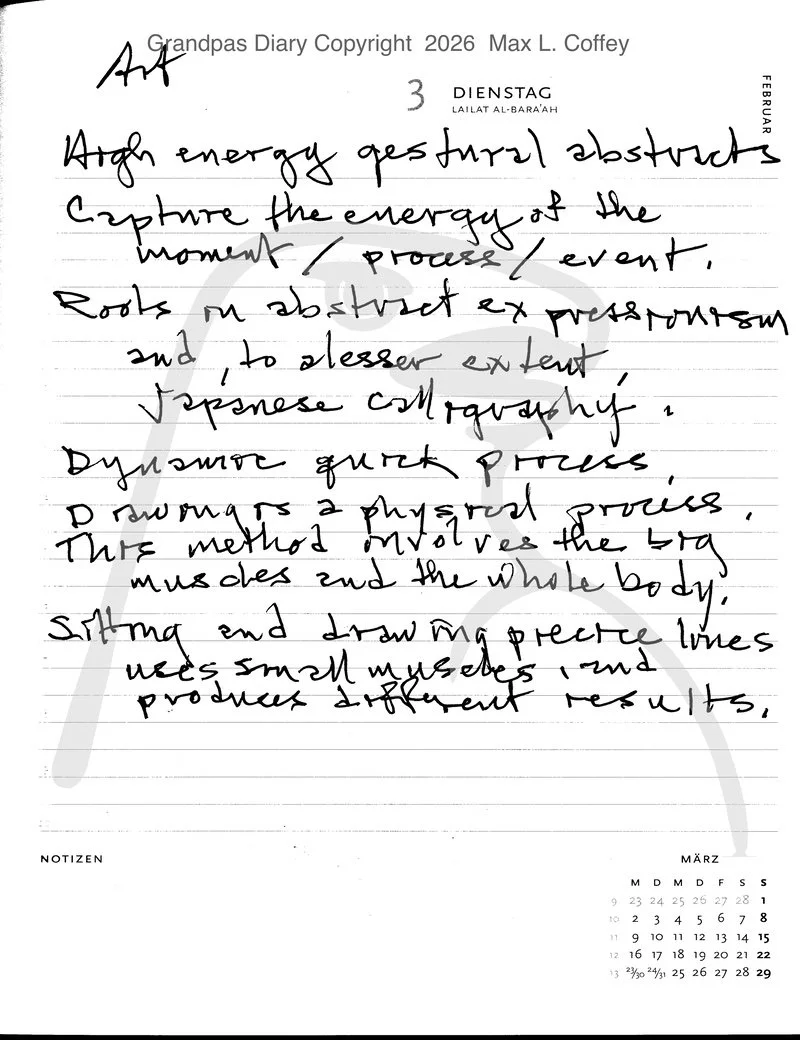 Grandpas Diary Copyright 2026 Max L. Coffey
Art
3 DIENSTAG
LAILAT AL-BARA'AH
FEBRUAR
High energy gestural abstracts
Capture the energy of the
moment / process / event.
Roots in abstract expressionism
and, to a lesser extent,
Japanese calligraphy.
Dynamic quick process,
Drawing is a physical process.
This method involves the big
muscles and the whole body.
Sitting and drawing precice lines
uses small muscles, and
produces different results.
NOTIZEN
MÄRZ
M D M D F S S
9 23 24 25 26 27 28 1
10 2 3 4 5 6 7 8
11 9 10 11 12 13 14 15
12 16 17 18 19 20 21 22
13 23/30 24/31 25 26 27 28 29